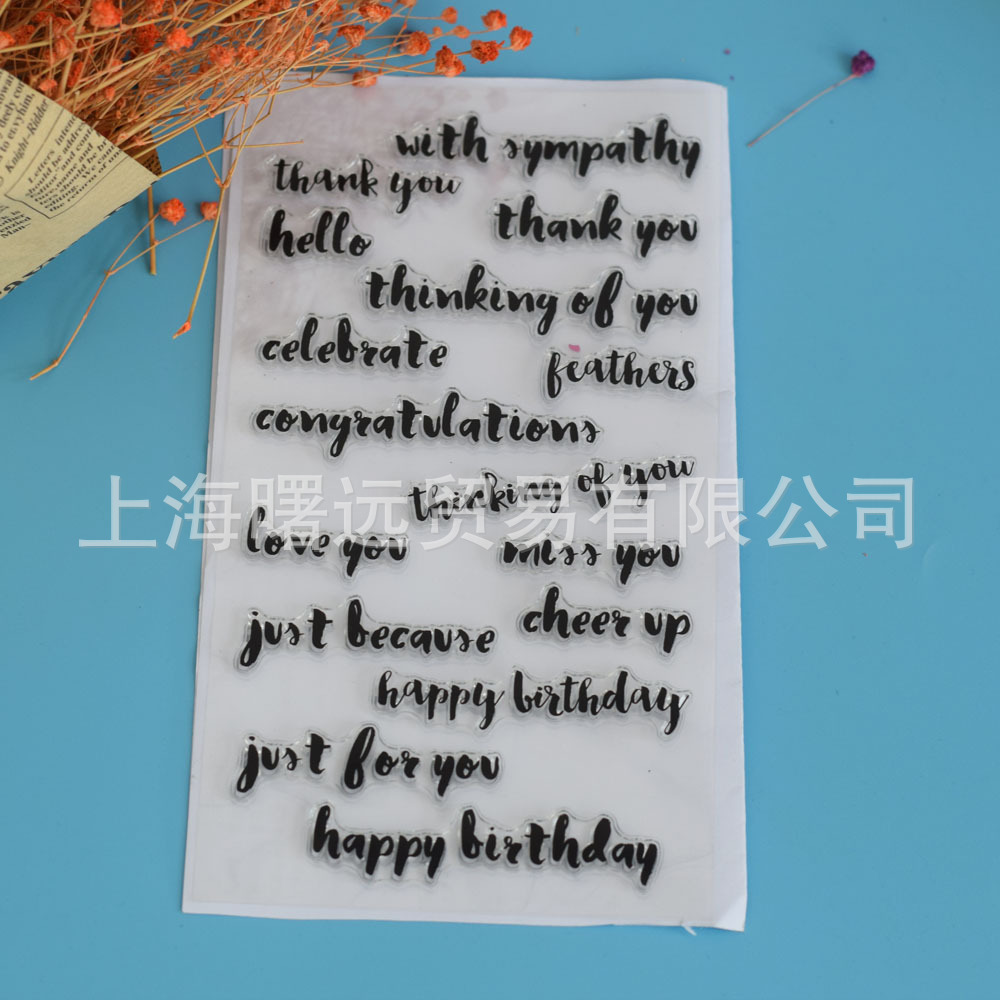 with sympathy
thank you
hello
thank you
thinking of you
celebrate
feathers
congratulations
thinking of you
上海曙远贸易有限公司
love you
miss you
just because
cheer up
happy birthday
just for you
happy birthday
Knight-Ridder